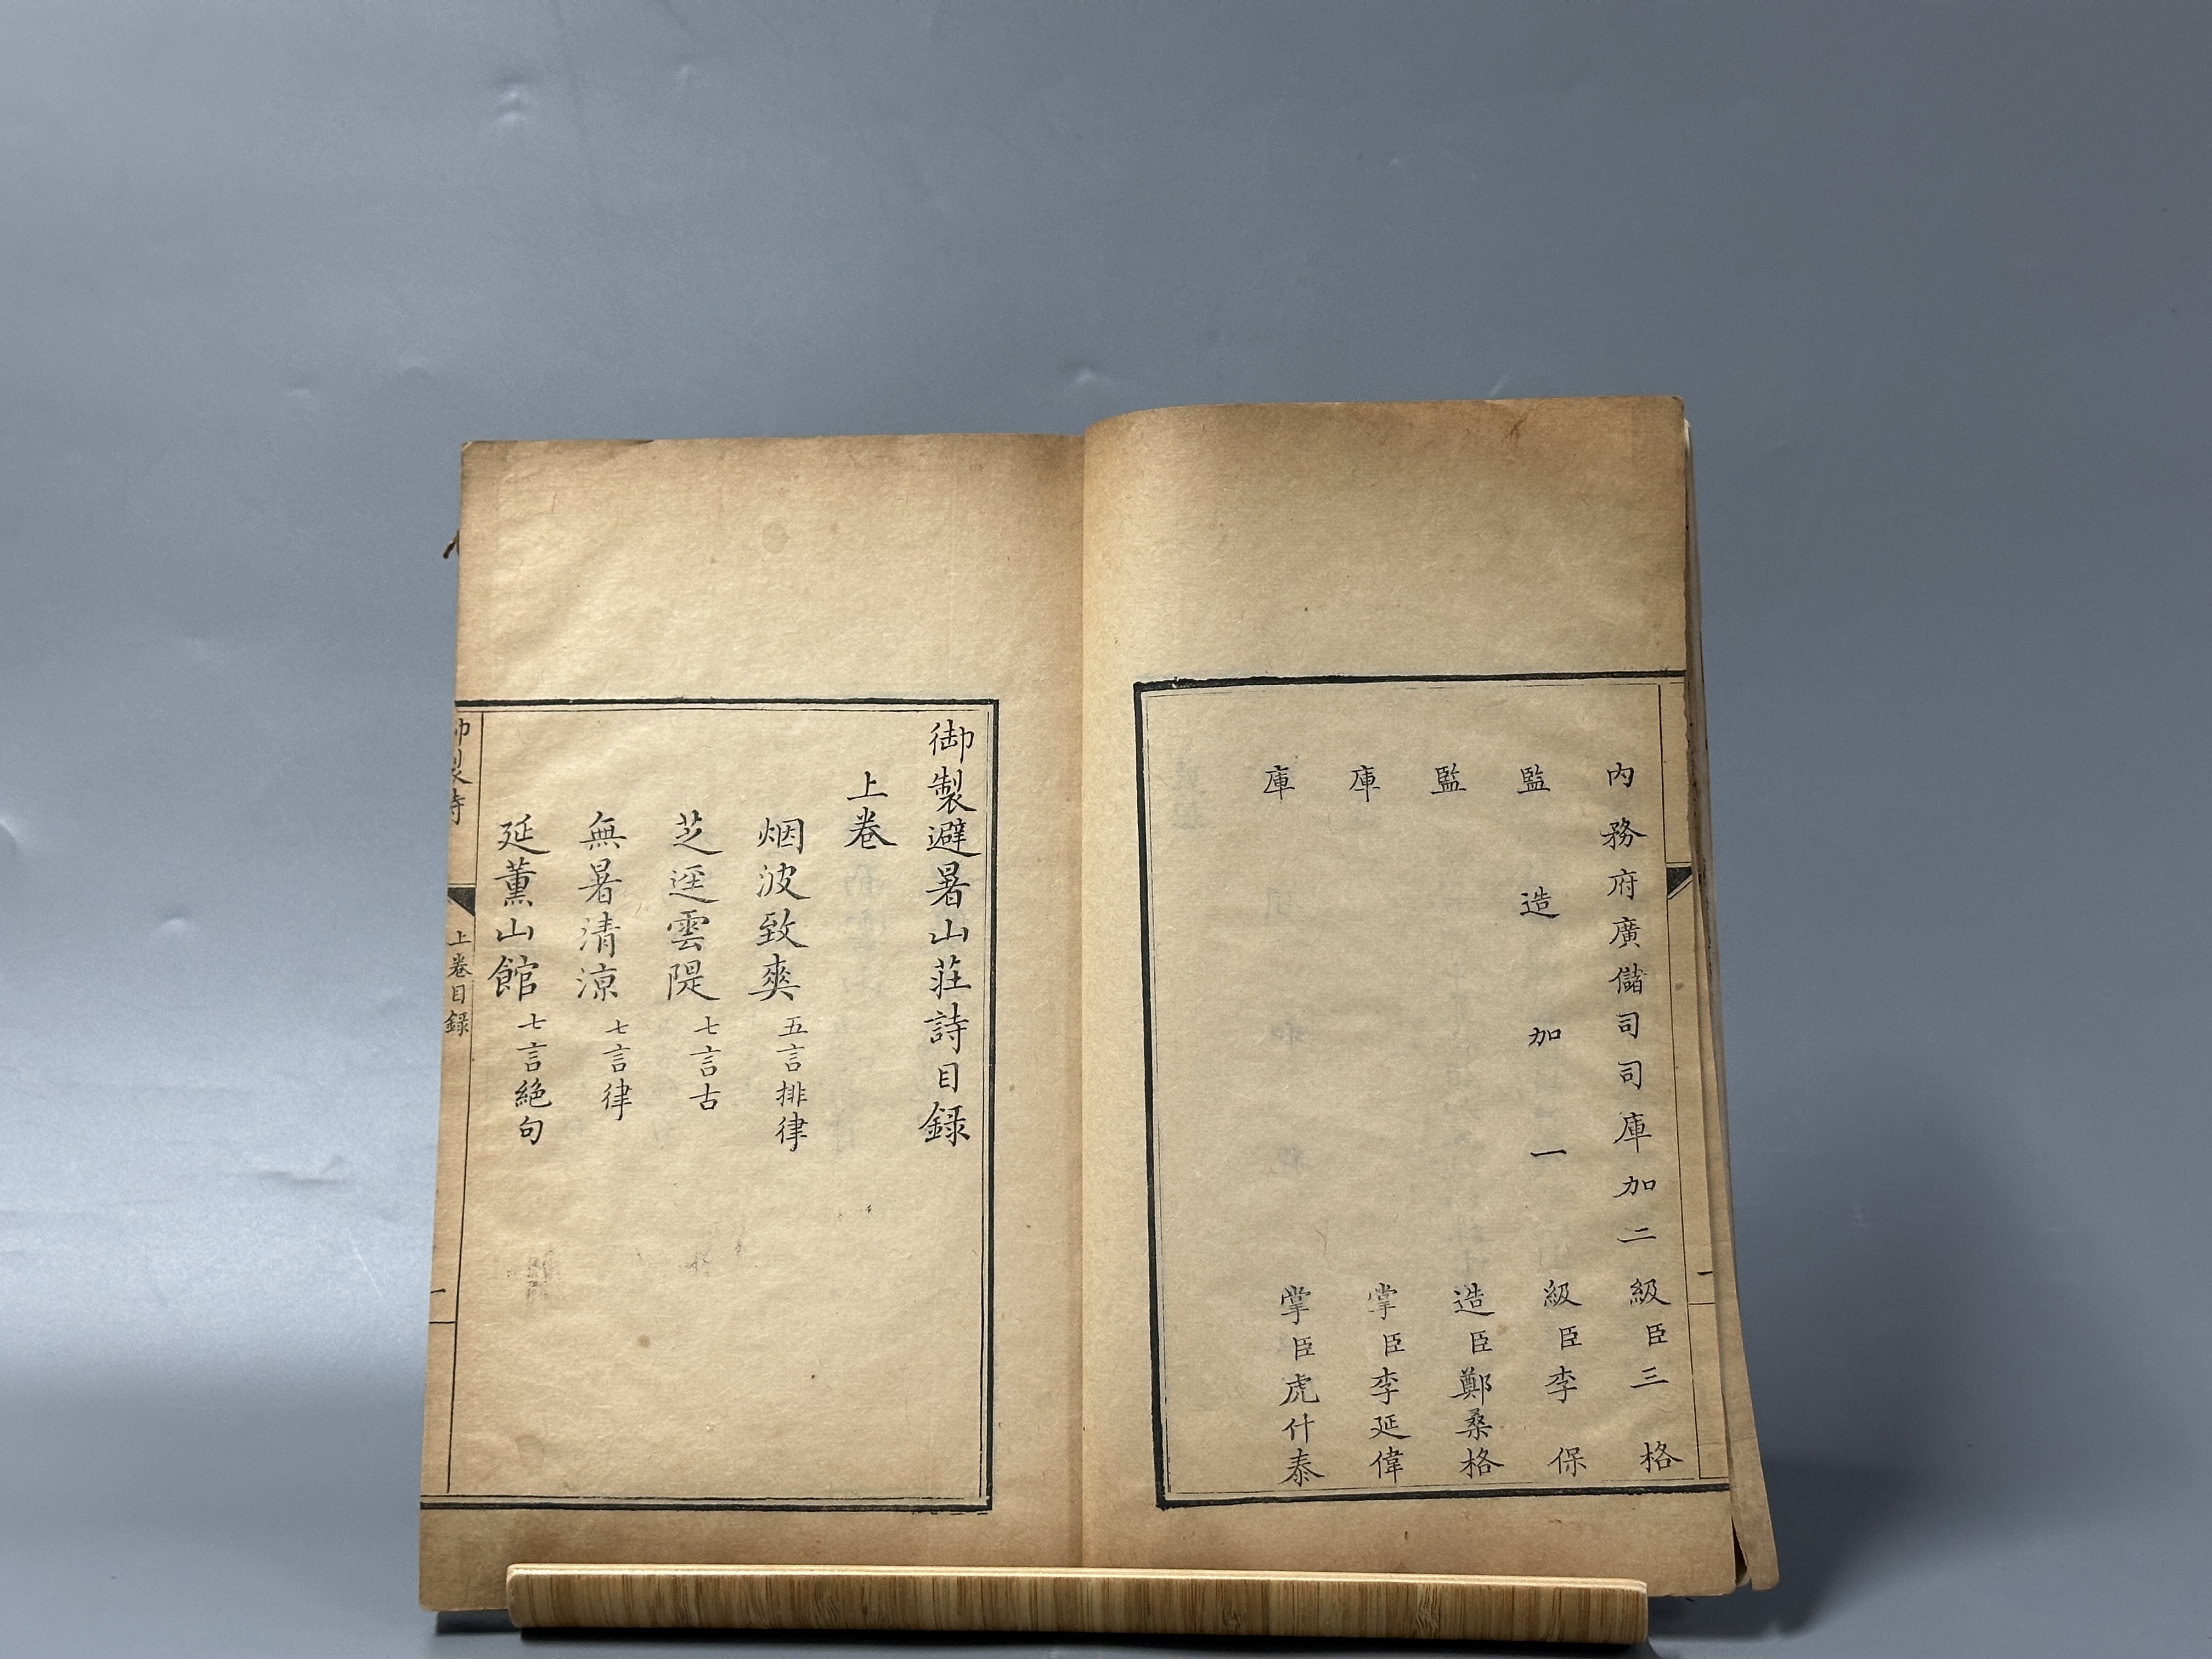 內務府廣儲司司庫加二級臣三格
監造加一級臣李保
監造臣鄭桑格
庫掌臣李延偉
庫掌臣虎什泰
御製避暑山莊詩目錄
上卷
烟波致爽 五言排律
芝逕雲隄 七言古
無暑清涼 七言律
延薰山館 七言絕句
御製詩 上卷目錄 一